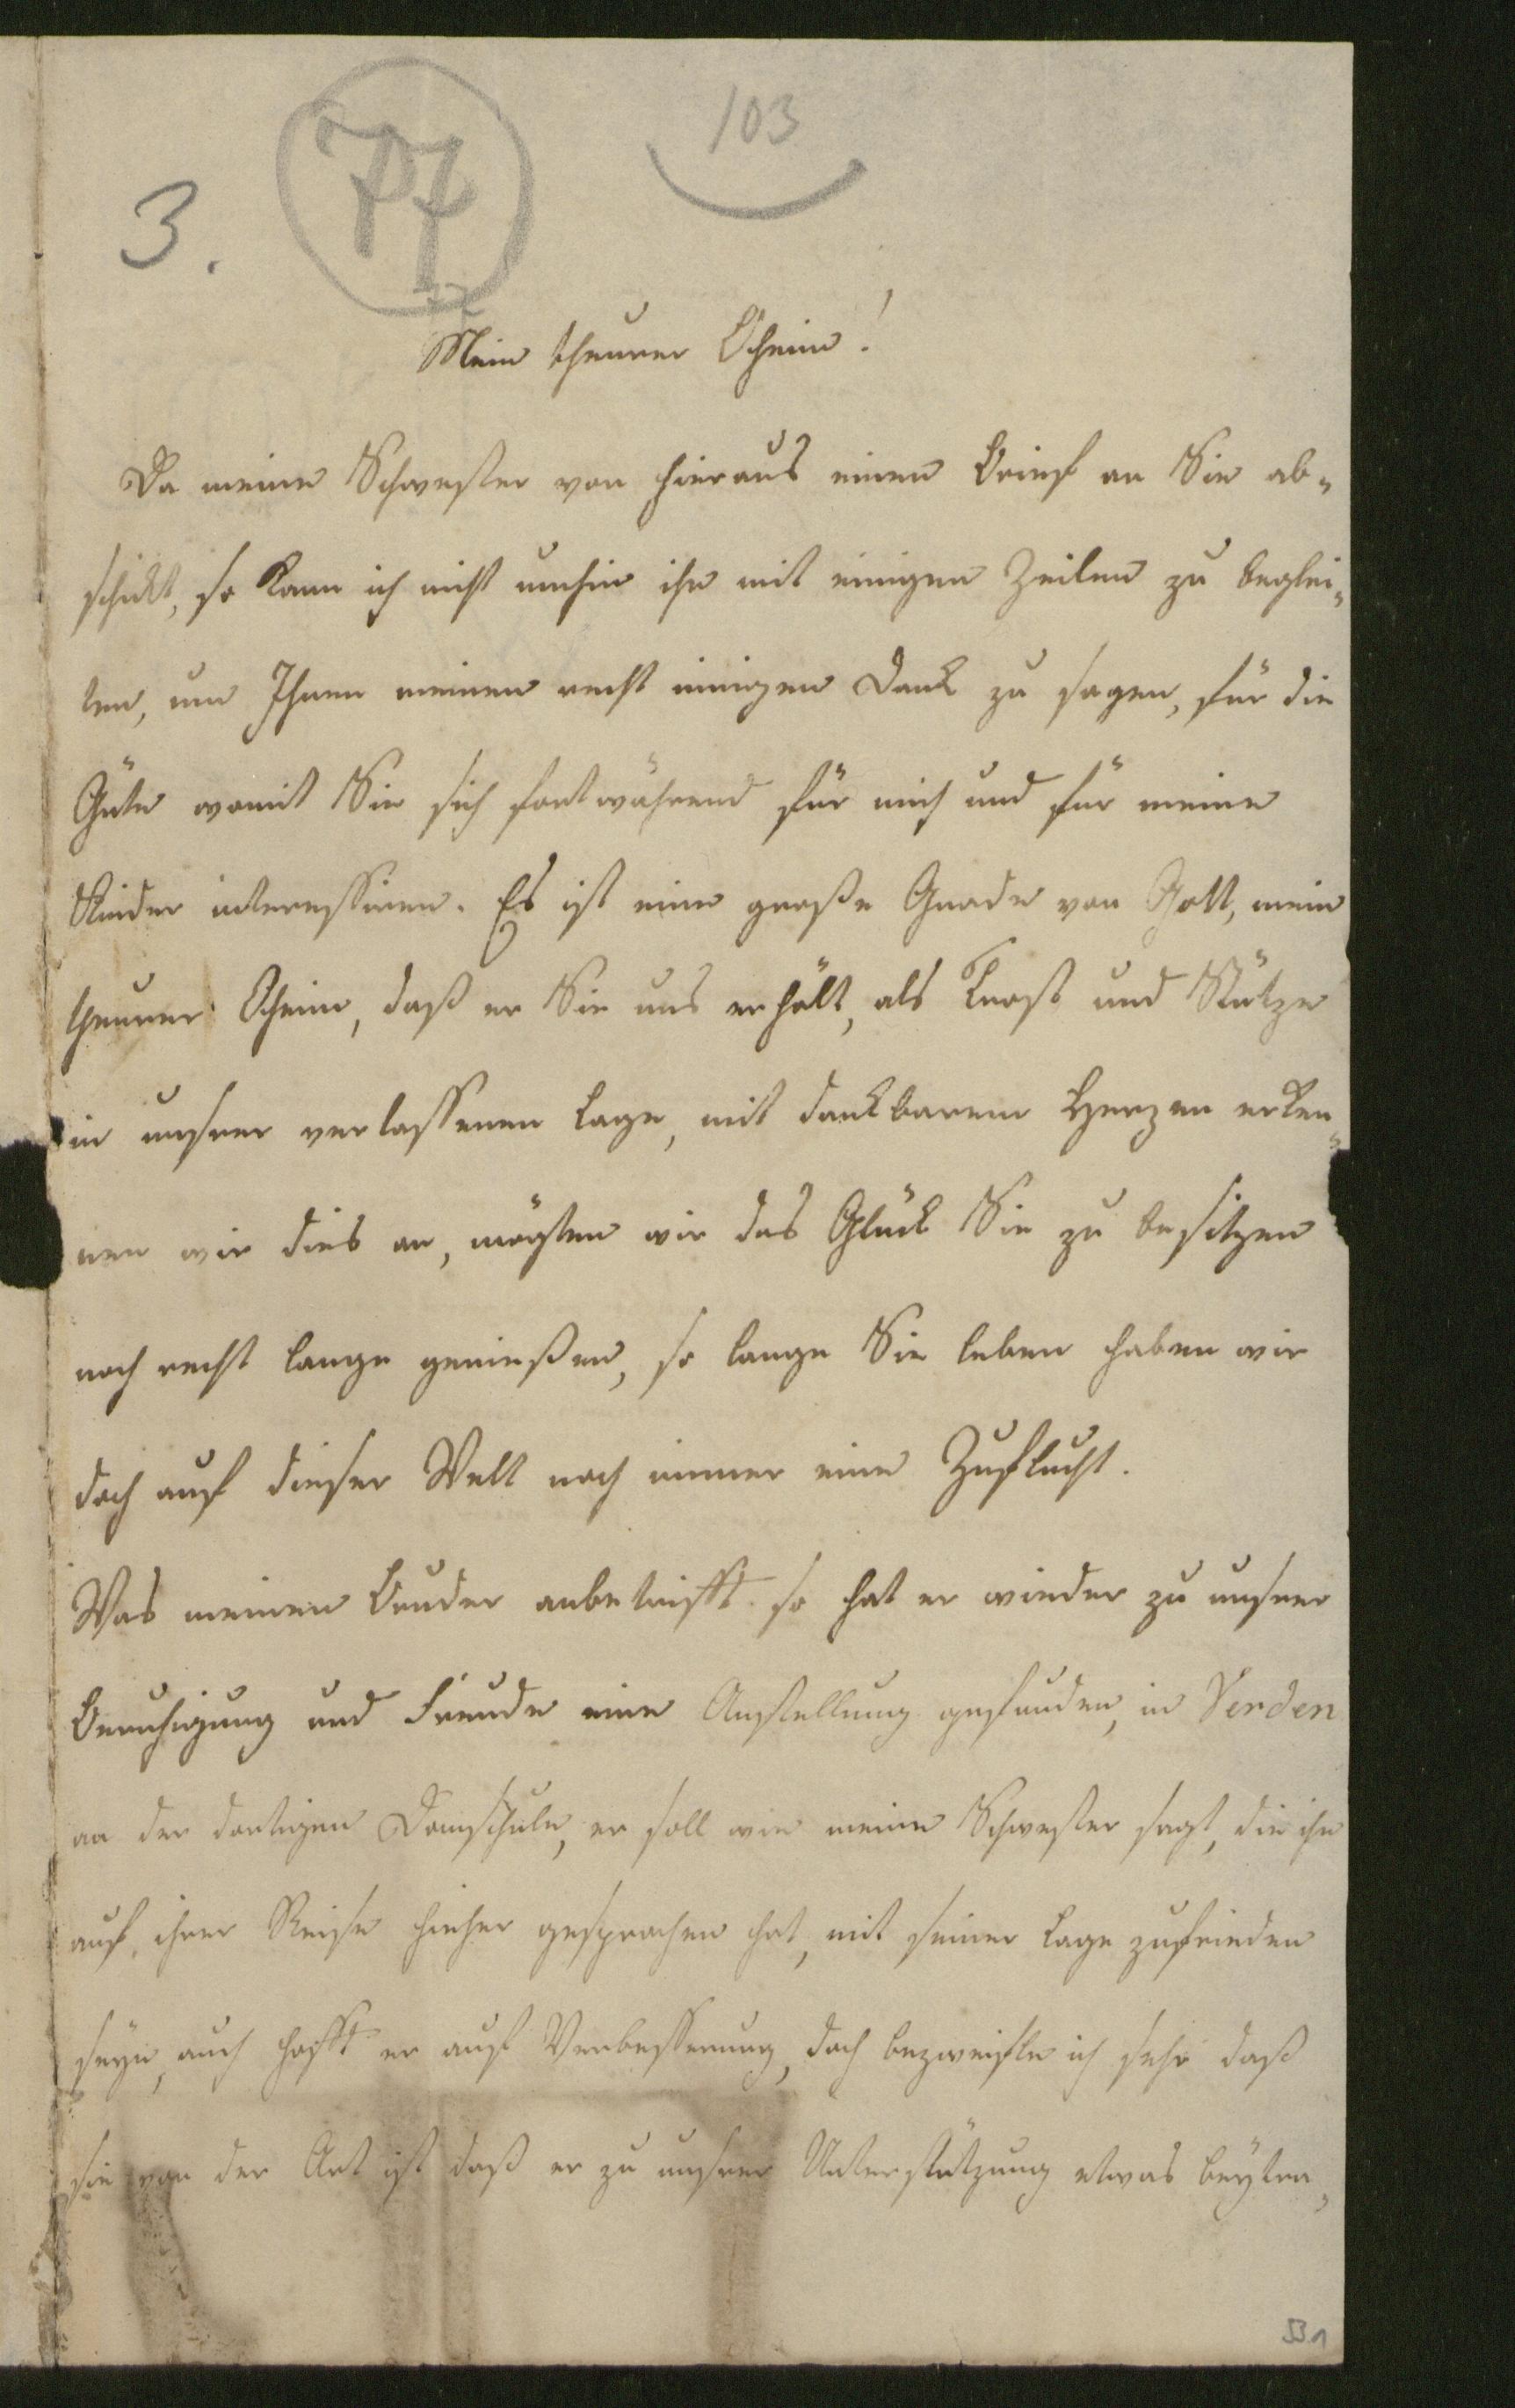 103
77
3.
77
Mein theurer Oheim!
Da meine Schwester von hieraus einen Brief an Sie ab-
schickt, so kann ich nicht umhin ihn mit einigen Zeilen zu beglei-
ten, um Ihnen meinen recht innigen Dank zu sagen, für die
Güte womit Sie sich fortwährend für mich und für meine
Kinder interessiren. Es ist eine große Gnade von Gott, mein
theurer Oheim, daß er Sie uns erhält, als Trost und Stütze
in unsrer verlassenen Lage, mit dankbarem Herzen erken-
nen wir dies an, mögten wir das Glück Sie zu besitzen
noch recht lange genießen, so lange Sie leben haben wir
doch auf dieser Welt noch immer eine Zuflucht.
Was meinen Bruder anbetrifft so hat er wieder zu unsrer
Beruhigung und Freude eine Anstellung gefunden, in Verden
an der dortigen Domschule, er soll wie meine Schwester sagt, die ihn
auf ihrer Reise hieher gesprochen hat, mit seiner Lage zufrieden
seyn, auch hofft er auf Verbesserung, doch bezweifle ich sehr daß
sie von der Art ist daß er zu unsrer Unterstützung etwas beytra-
53.1